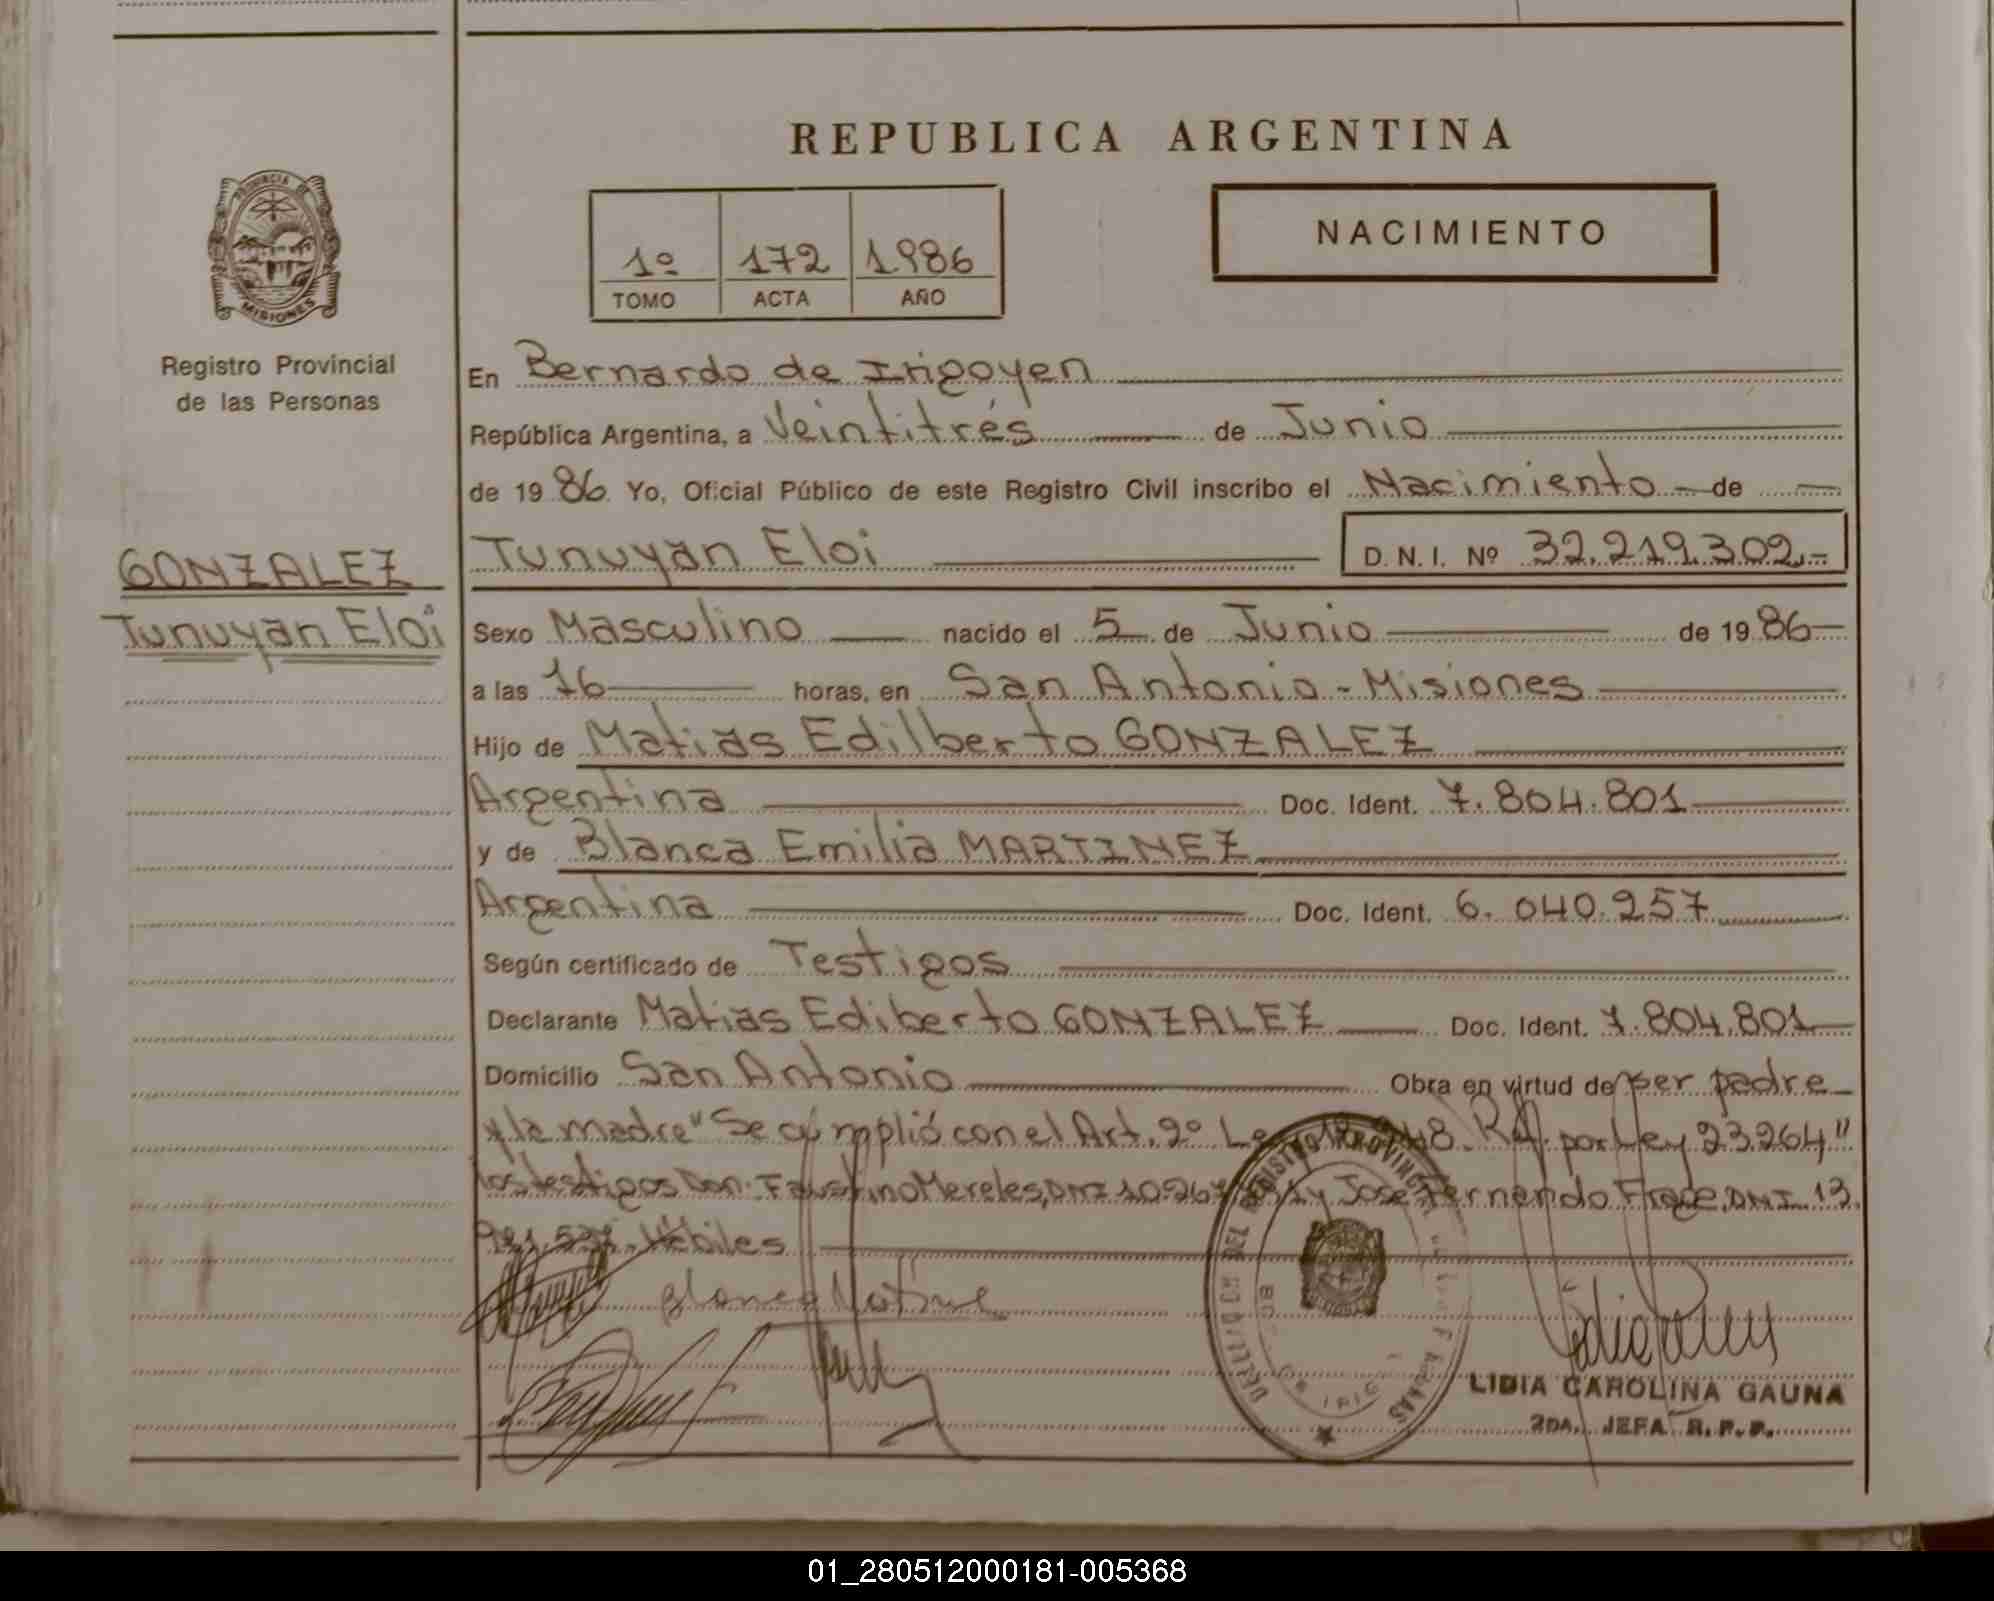 REPUBLICA ARGENTINA
NACIMIENTO
1º 172 1986
TOMO ACTA AÑO
PROVINCIA DE
MISIONES
Registro Provincial
de las Personas
En Bernardo de Irigoyen
República Argentina, a Veintitrés de Junio
de 19 86. Yo, Oficial Público de este Registro Civil inscribo el Nacimiento de
GONZALEZ
Tunuyan Eloi
Tunuyan Eloi D. N. I. Nº 32.219.302.-
Sexo Masculino nacido el 5 de Junio de 19 86
a las 16 horas, en San Antonio - Misiones
Hijo de Matias Edilberto GONZALEZ
Argentina Doc. Ident. 7.804.801
y de Blanca Emilia MARTINEZ
Argentina Doc. Ident. 6.040.257
Según certificado de Testigos
Declarante Matias Ediberto GONZALEZ Doc. Ident. 7.804.801
Domicilio San Antonio Obra en virtud de ser padre
y la madre" Se cumplió con el Art. 2º por Ley 23.264"
los testigos Don. Faustino Mereles, DNI y Jose Fernendo DNI. 13.
Hábiles
Blanca
LIDIA CAROLINA GAUNA
2DA. JEFA R. P. P.
01_280512000181-005368